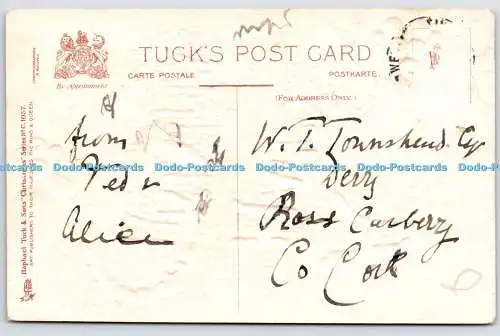 TUCK'S POST CARD
CARTE POSTALE
POSTKARTE.
By Appointment
(FOR ADDRESS ONLY.)
from
Ted &
Alice
W. T. Townshend Esq
Derry
Ross Carbery
Co Cork
Dodo-Postcards Dodo-Postcards Dodo-Postcards Dodo-Postcards
Dodo-Postcards Dodo-Postcards Dodo-Postcards Dodo-Postcards
Raphael Tuck & Sons'
ART PUBLISHERS TO THEIR MAJESTIES THE KING & QUEEN.